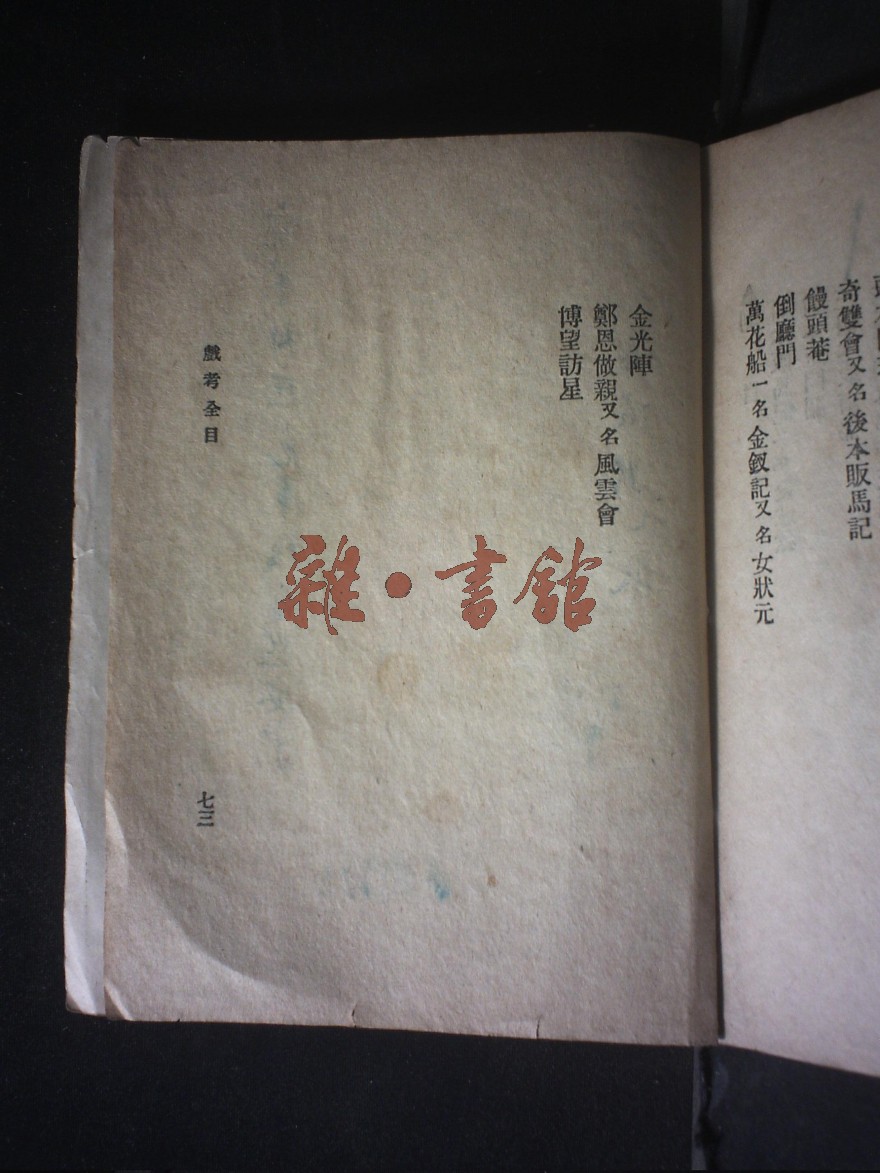 奇雙會又名後本販馬記
饅頭菴
倒廳門
萬花船一名金釵記又名女狀元
金光陣
鄭恩做親又名風雲會
博望訪星
戲考全目
七三
雜·書館